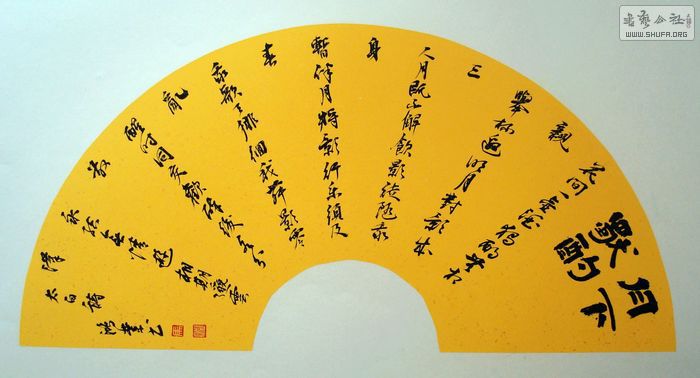 月下
獨酌
花间一壶酒獨酌無相
親
舉杯邀明月對影成
三
人月既不解飲影徒隨我
身
暫伴月將影行樂須及
春
我歌月徘徊我舞影零
亂
醒时同交歡醉後各分
散
永結無情遊相期邈雲
漢
太白詩
书艺公社
WWW.SHUFA.ORG